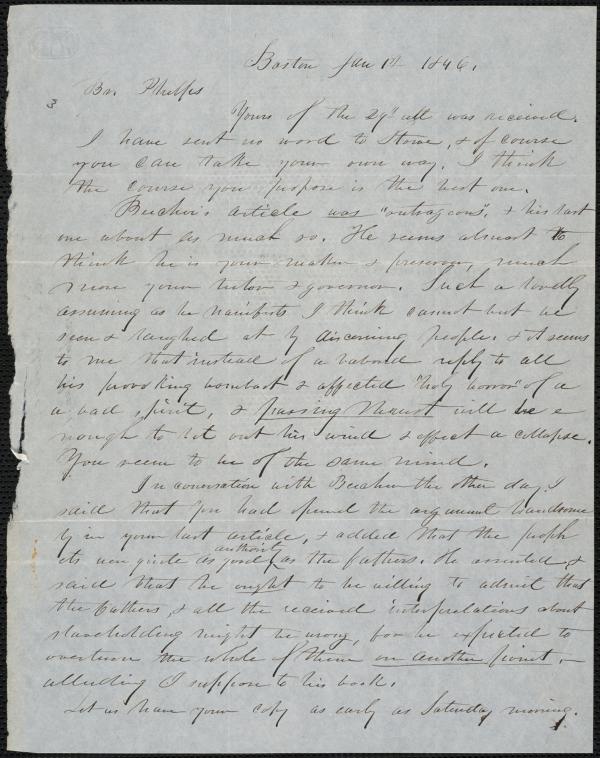 Boston Jan 1st 1846.
3
Bro. Phelps
Yours of the 29th ult was received.
I have sent no word to Stowe, & of course
you can take your own way. I think
the course you propose is the best one.
Beecher's article was "outrageous", & his last
one about as much so. He seems almost to
think he is your maker & preserver, much
more your tutor & governor. Such a
assuming as he manifests I think cannot but be
seen & laughed at by discerning people. & it seems
to me that instead of a labored reply to all
his provoking bombast & affected "holy horror" of a
a bad spirit, a passing will be e
nough to let out his wind & effect a collapse.
You seem to be of the same mind.
In conversation with Beecher the other day, I
said that you had opened the argument handsome
ly in your last article, & added that the proph
ets were quite as good authority as the fathers. He assented &
said that he ought to be willing to admit that
the fathers, & all the received interpretations about
slaveholding might be wrong, for he expected to
overturn the whole of them on another point, —
alluding I suppose to his book.
Let us have your copy as early as Saturday morning.